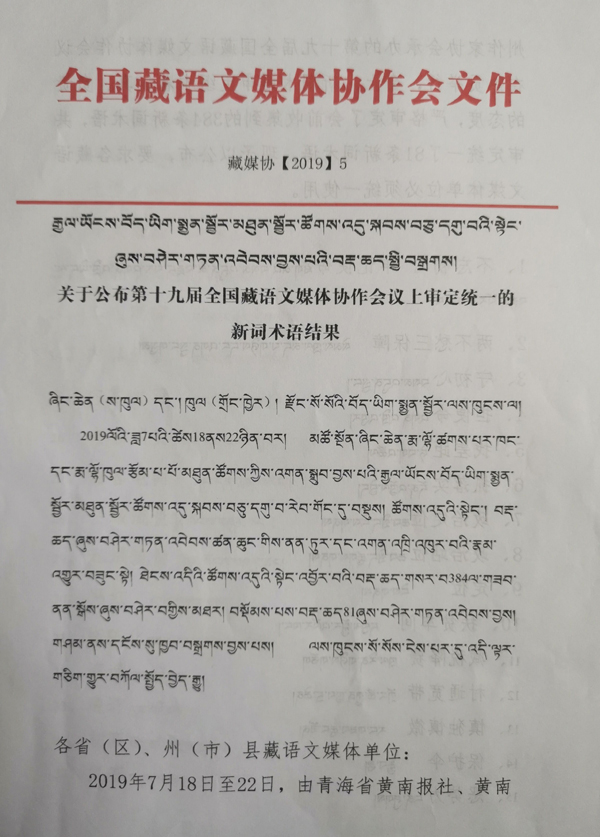 全国藏语文媒体协作会文件
藏媒协【2019】5
རྒྱལ་ཡོངས་བོད་ཡིག་སྨྱན་སྦྱོར་མཐུན་སྦྱོར་ཚོགས་འདུ་སྐབས་བཅུ་དགུ་བའི་སྟེང་
ཞུས་བཤེར་གཏན་འབེབས་བྱས་པའི་བརྡ་ཆད་སྤྱི་བསྒྲགས།
关于公布第十九届全国藏语文媒体协作会议上审定统一的
新词术语结果
ཞིང་ཆེན（ས་ཁུལ）དང་། ཁུལ（གྲོང་ཁྱེར）། རྫོང་སོ་སོའི་བོད་ཡིག་སྨྱན་སྦྱོར་ལས་ཁུངས་ལ།
2019ལོའི་ཟླ7པའི་ཚེས18ནས22ཉིན་བར། མཚོ་སྔོན་ཞིང་ཆེན་རྨ་ལྷོ་ཚགས་པར་ཁང་
དང་རྨ་ལྷོ་ཁུལ་རྩོམ་པ་པོ་མཐུན་ཚོགས་ཀྱིས་འགན་སྒྲུབ་བྱས་པའི་རྒྱལ་ཡོངས་བོད་ཡིག་སྨྱན་
སྦྱོར་མཐུན་སྦྱོར་ཚོགས་འདུ་སྐབས་བཅུ་དགུ་བ་རེབ་གོང་དུ་བསྡུས། ཚོགས་འདུའི་སྟེང་། བརྡ་
ཆད་ཞུས་བཤེར་གཏན་འབེབས་ཚན་ཆུང་གིས་ནན་ཏུར་དང་འགན་འཁྲི་འཁུར་བའི་རྣམ་
འགྱུར་བཟུང་སྟེ། ཐེངས་འདིའི་ཚོགས་འདུའི་སྟེང་འབྱོར་བའི་བརྡ་ཆད་གསར་བ384ལ་གཟབ་
ནན་སྒོས་ཞུས་བཤེར་བགྱིས་མཐར། བསྡོམས་པས་བརྡ་ཆད81ཞུས་བཤེར་གཏན་འབེབས་བྱས།
གཤམ་ནས་དངོས་སུ་ཁྱབ་བསྒྲགས་བྱས་པས། ལས་ཁུངས་སོ་སོས་ངེས་པར་དུ་འདི་ལྟར་
གཅིག་གྱུར་བཀོལ་སྤྱོད་བྱེད་རྒྱུ།
各省（区）、州（市）县藏语文媒体单位：
2019年7月18日至22日，由青海省黄南报社、黄南